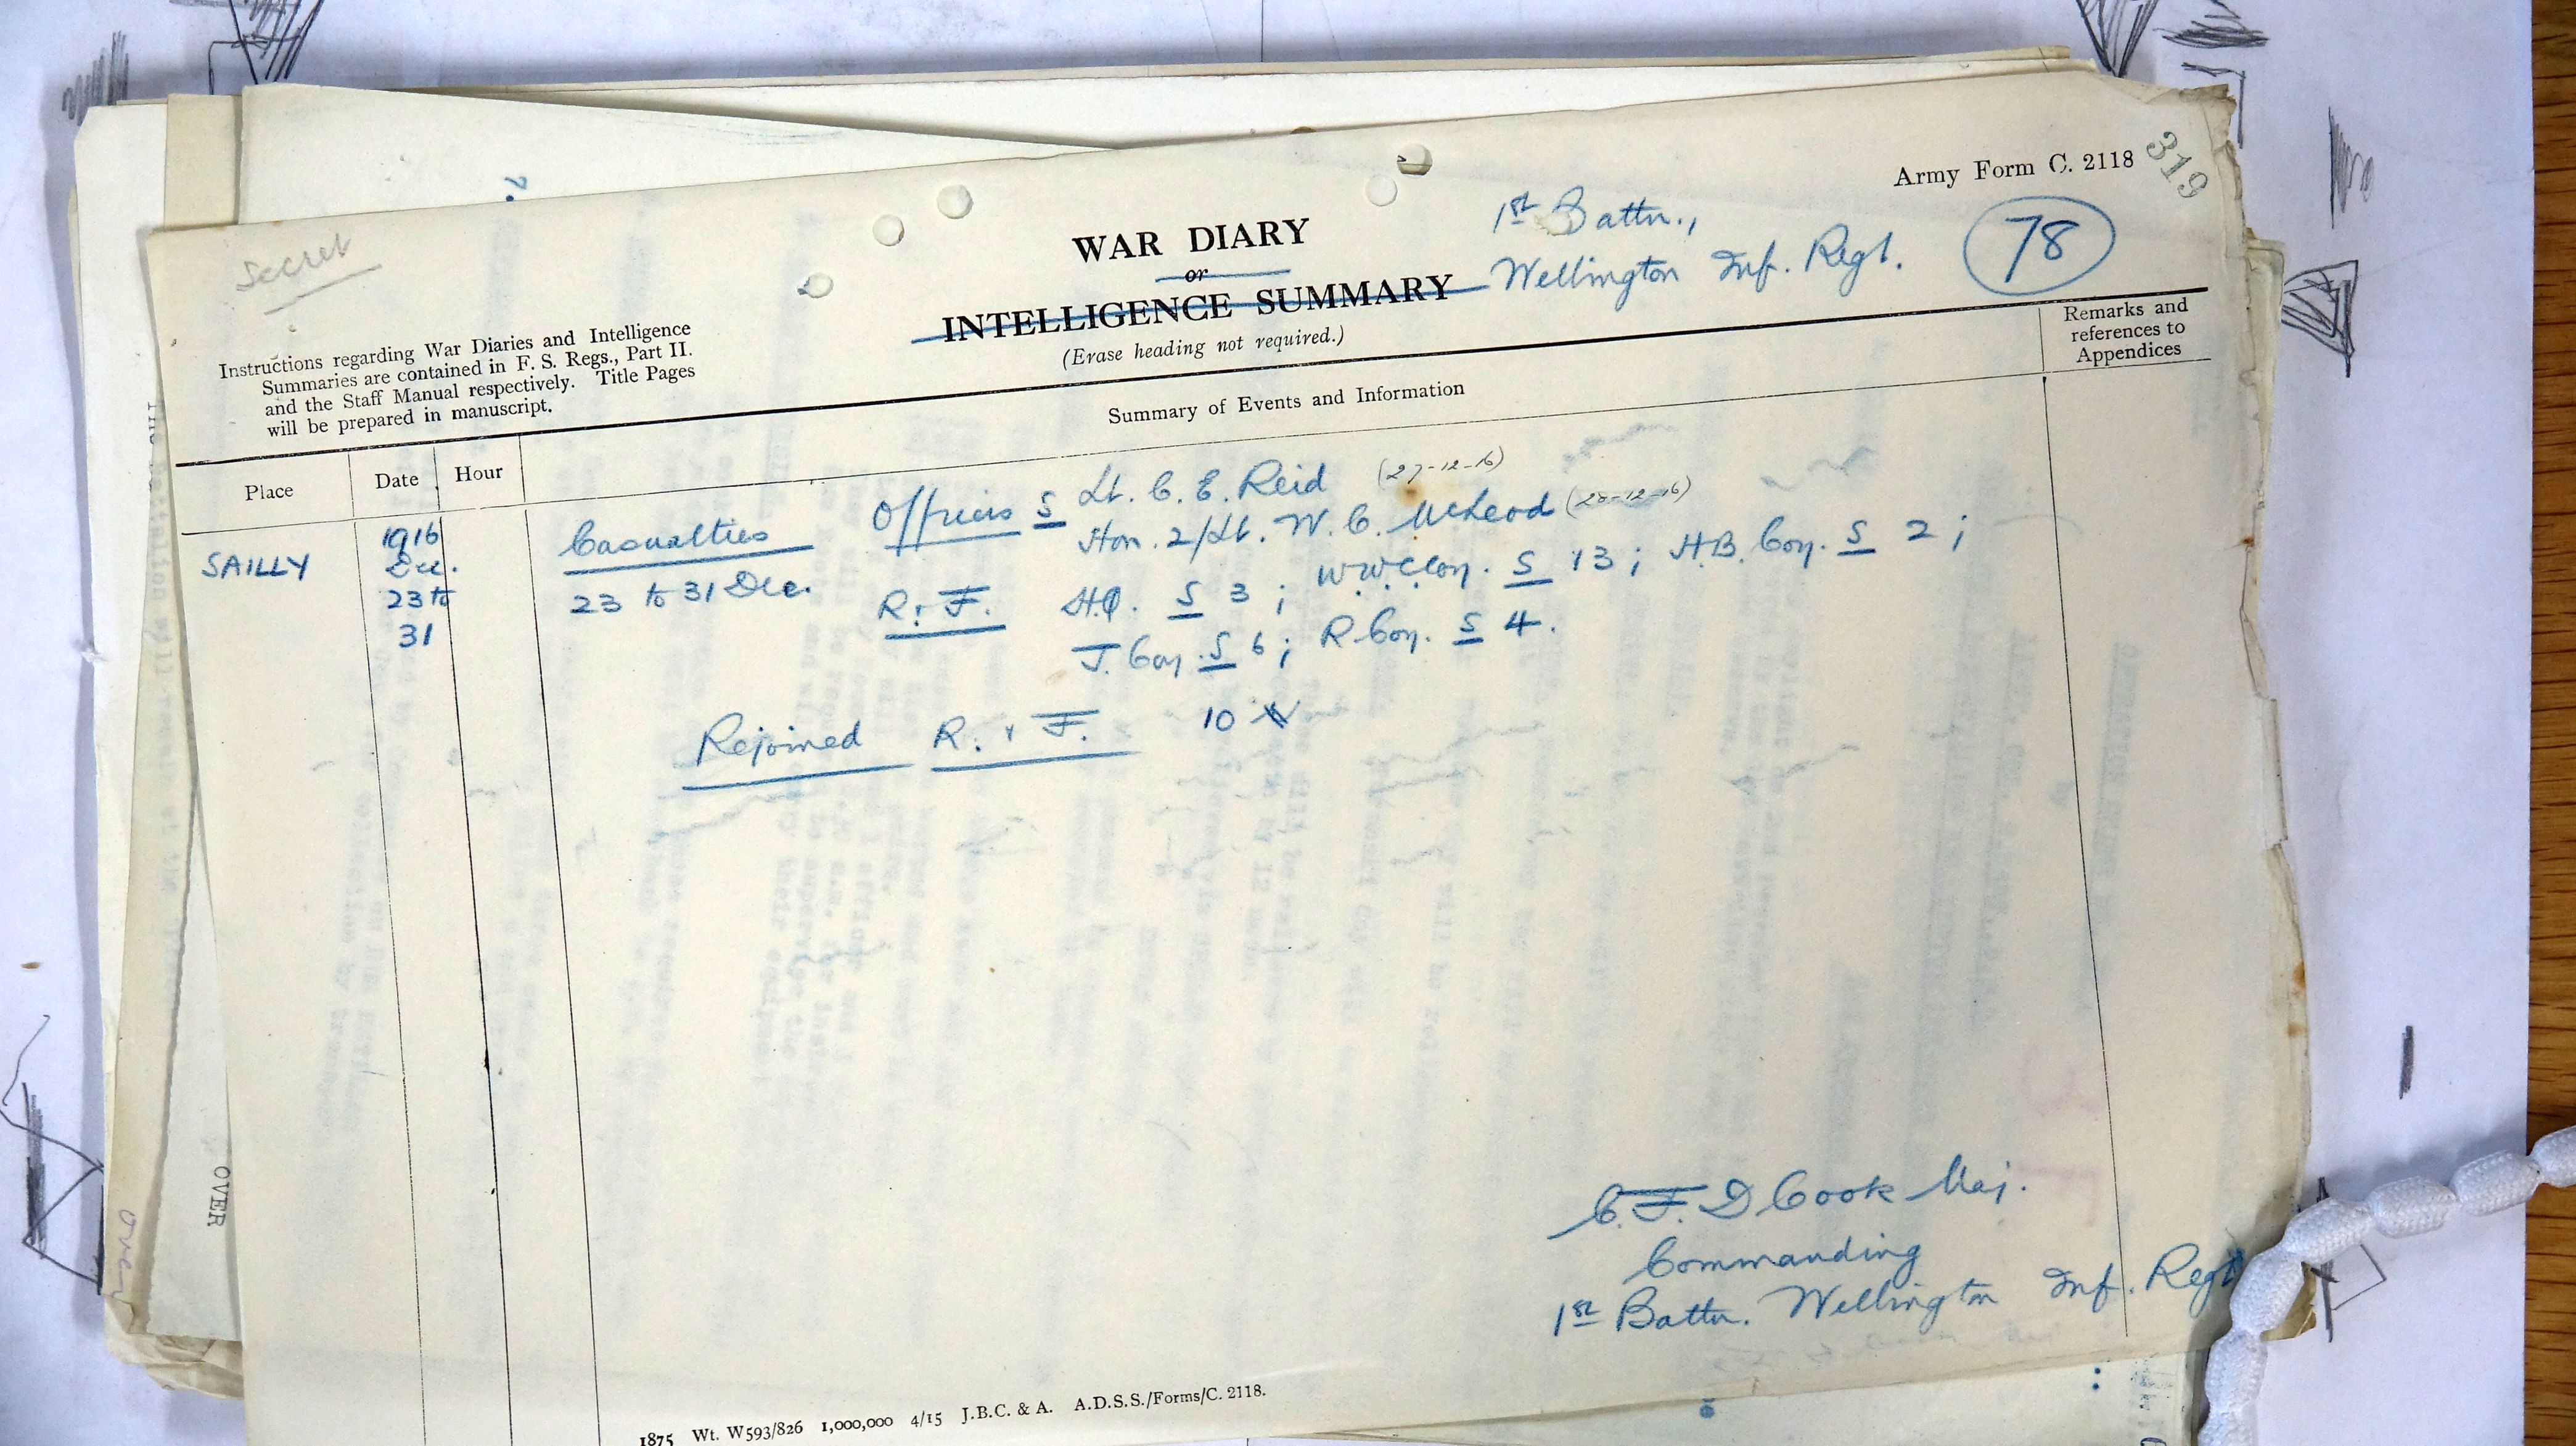 Army Form C. 2118
319
Secret
WAR DIARY
or
INTELLIGENCE SUMMARY
(Erase heading not required.)
1st Battn.,
Wellington Inf. Regt.
78
Instructions regarding War Diaries and Intelligence
Summaries are contained in F. S. Regs., Part II.
and the Staff Manual respectively. Title Pages
will be prepared in manuscript.
Summary of Events and Information
Remarks and
references to
Appendices
Place
Date
Hour
SAILLY
1916
Dec.
23 to
31
Casualties
23 to 31 Dec.
Officers S Lt. C. E. Reid (27-12-16)
Hon. 2/Lt. W. C. McLeod (28-12-16)
R. & F. H.Q. S 3 ; W.W.C. Coy. S 13 ; H.B. Coy. S 2 ;
T. Coy. S 6 ; R. Coy. S 4.
Rejoined R. & F. 10
C. F. D Cook Maj.
Commanding
1st Battn. Wellington Inf. Regt
1875 Wt. W593/826 1,000,000 4/15 J.B.C. & A. A.D.S.S./Forms/C. 2118.
OVER
over